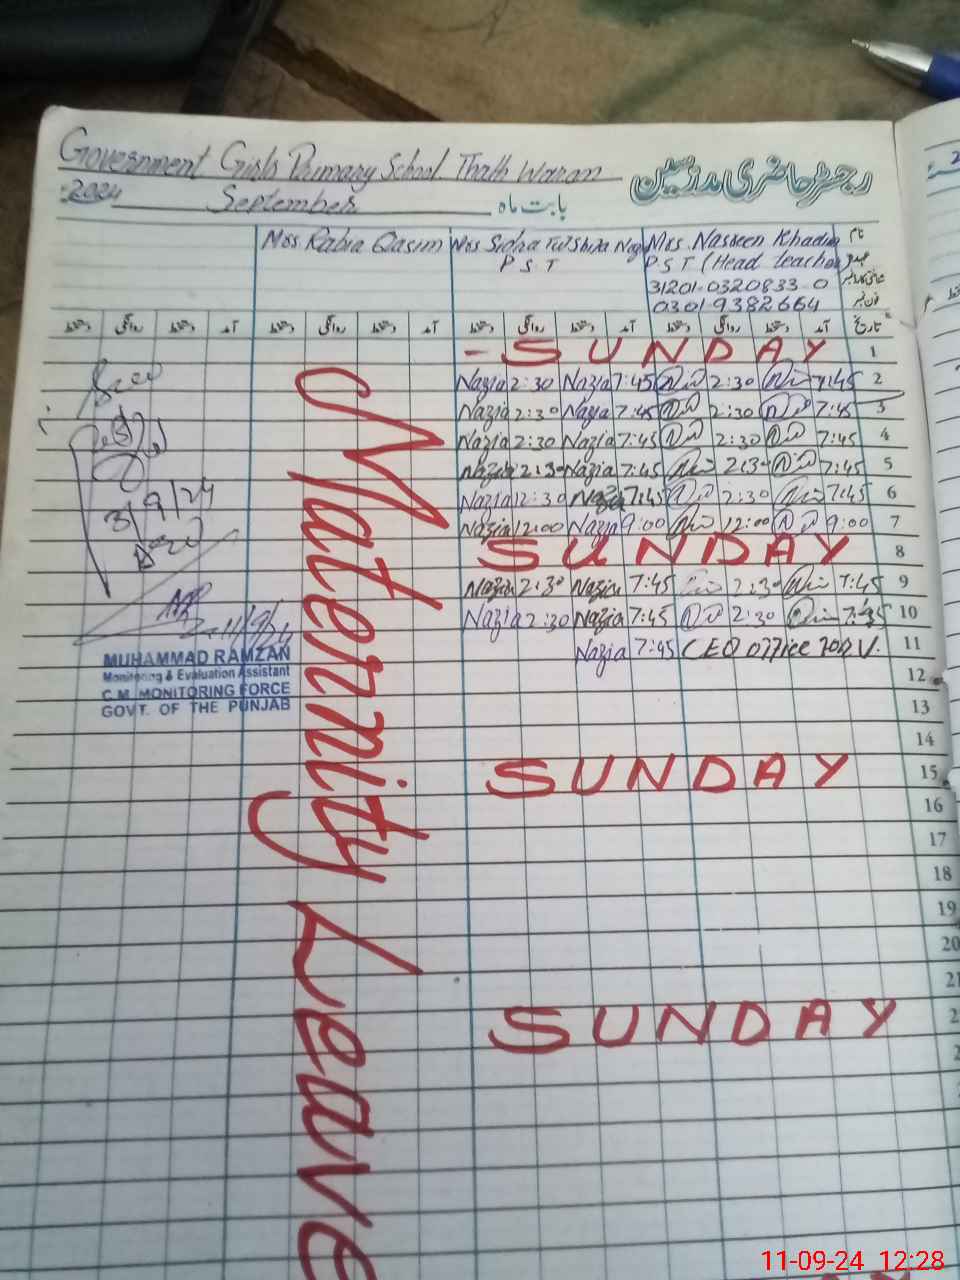 Government Girls Primary School Thath Waran
رجسٹر حاضری مدرسین
2024 September بابت ماہ
Mss Rabia Qasim Mrs Nasreen Khadim نام
P S T P S T (Head teacher) عہدہ
31201-0320833-0 شناختی کارڈ نمبر
0301-9382664 فون نمبر
دستخط روانگی دستخط آمد دستخط روانگی دستخط آمد دستخط روانگی دستخط آمد دستخط روانگی دستخط آمد تاریخ
- SUNDAY 1
Nazia 2:30 Nazia 7:45 2:30 7:45 2
Nazia 2:30 Nazia 7:45 2:30 7:45 3
Nazia 2:30 Nazia 7:45 2:30 7:45 4
Nazia 2:30 Nazia 7:45 2:30 7:45 5
Nazia 2:30 Nazia 7:45 2:30 7:45 6
Nazia 12:00 Nazia 9:00 12:00 9:00 7
SUNDAY 8
Nazia 2:30 Nazia 7:45 2:30 7:45 9
Nazia 2:30 Nazia 7:45 2:30 7:45 10
Nazia 7:45 CEO office 11
12
13
14
SUNDAY 15
16
17
18
19
20
21
SUNDAY
Maternity Leave
3/9/24
11/9/24
MUHAMMAD RAMZAN
Monitoring & Evaluation Assistant
C.M. MONITORING FORCE
GOVT. OF THE PUNJAB
11-09-24 12:28